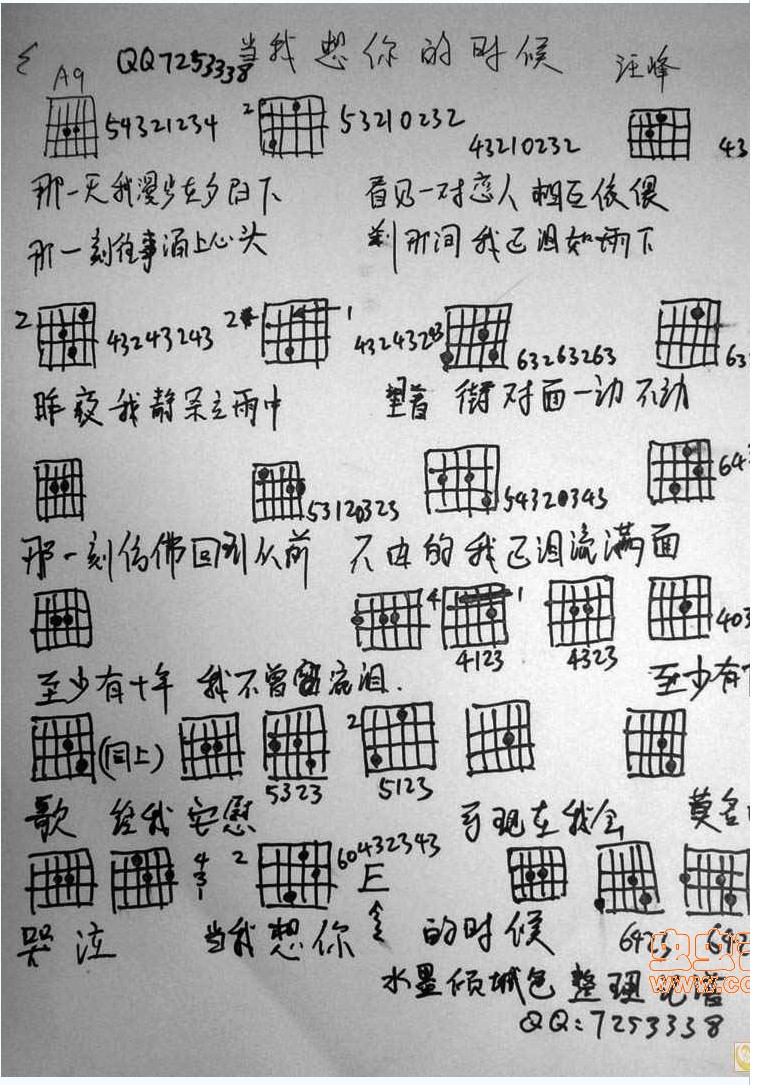 QQ7253338 当我想你的时候 汪峰
A9
54321234 2 53210232 43210232 43
那一天我漫步在夕阳下 看见一对恋人相互依偎
那一刻往事涌上心头 刹那间我已泪如雨下
2 43243243 2 1 43243243 63263263 63
昨夜我静呆立雨中 望着街对面一动不动
53120323 54320343 643
那一刻仿佛回到从前 不由的我已泪流满面
4 1 4123 4323 403
至少有十年 我不曾流泪. 至少有
(同上) 5323 2 5123
歌 给我安慰 可现在我会 莫名
4 3 1 2 60432343 E
哭泣 当我想你 的时候 6423 642
水墨倾城色 整理记谱
QQ:7253338